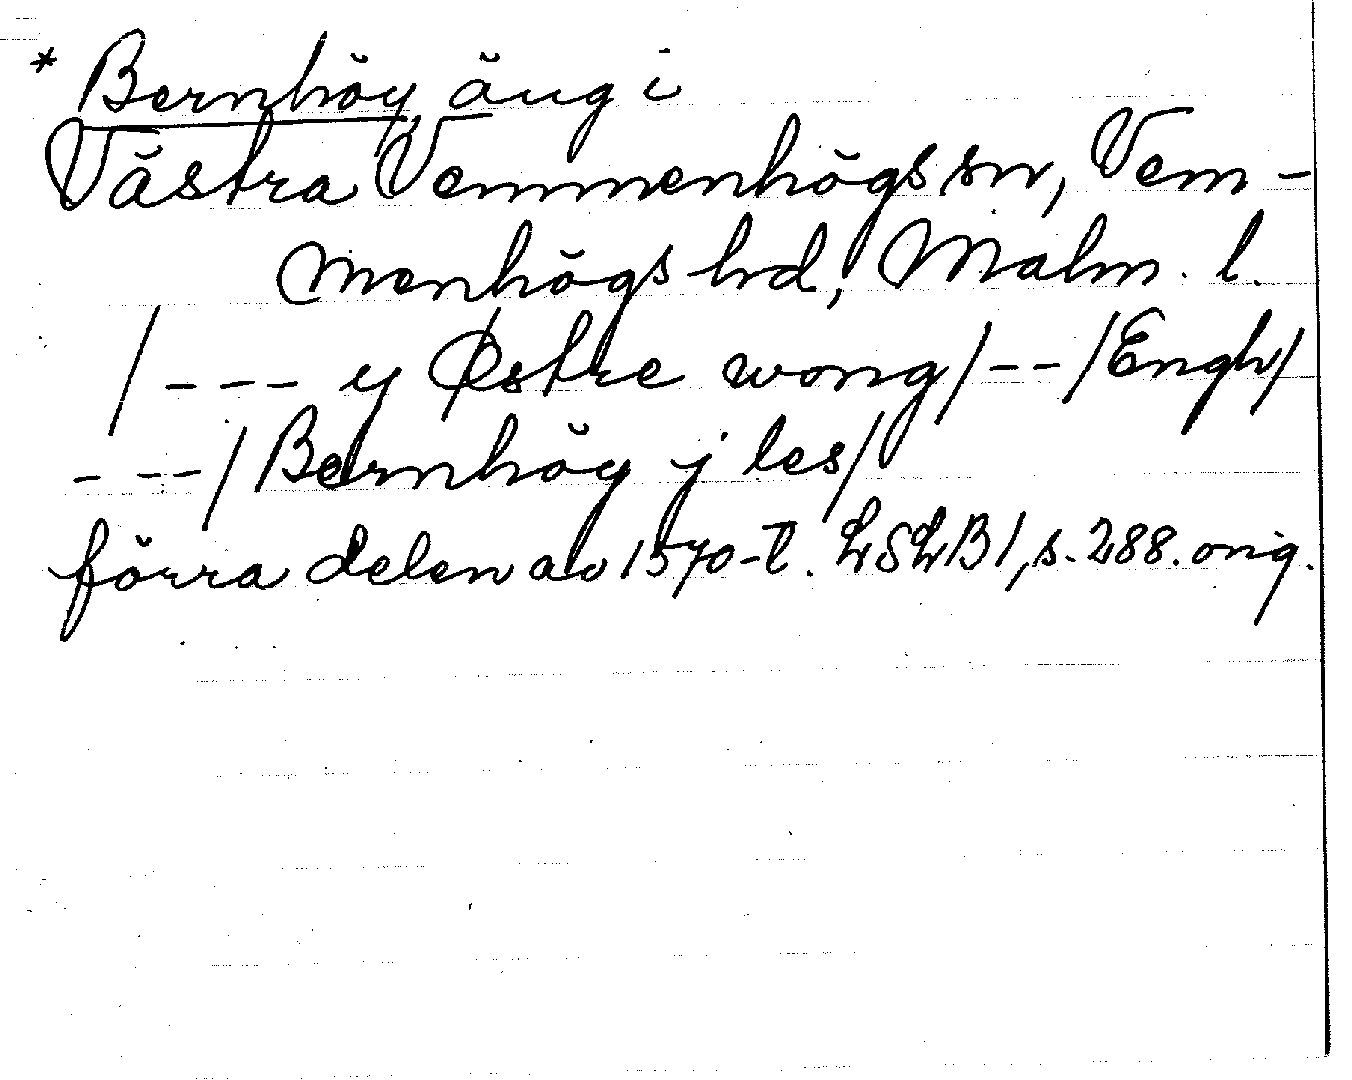 * Bernhöy äng i
Västra Vemmenhögs sn, Vem-
menhögs hd, Malm. l.
/--- y Østre wong/--/Engh/
---/Bernhöy j les/
förra delen av 1570-t. LSLB1, s. 288. orig.